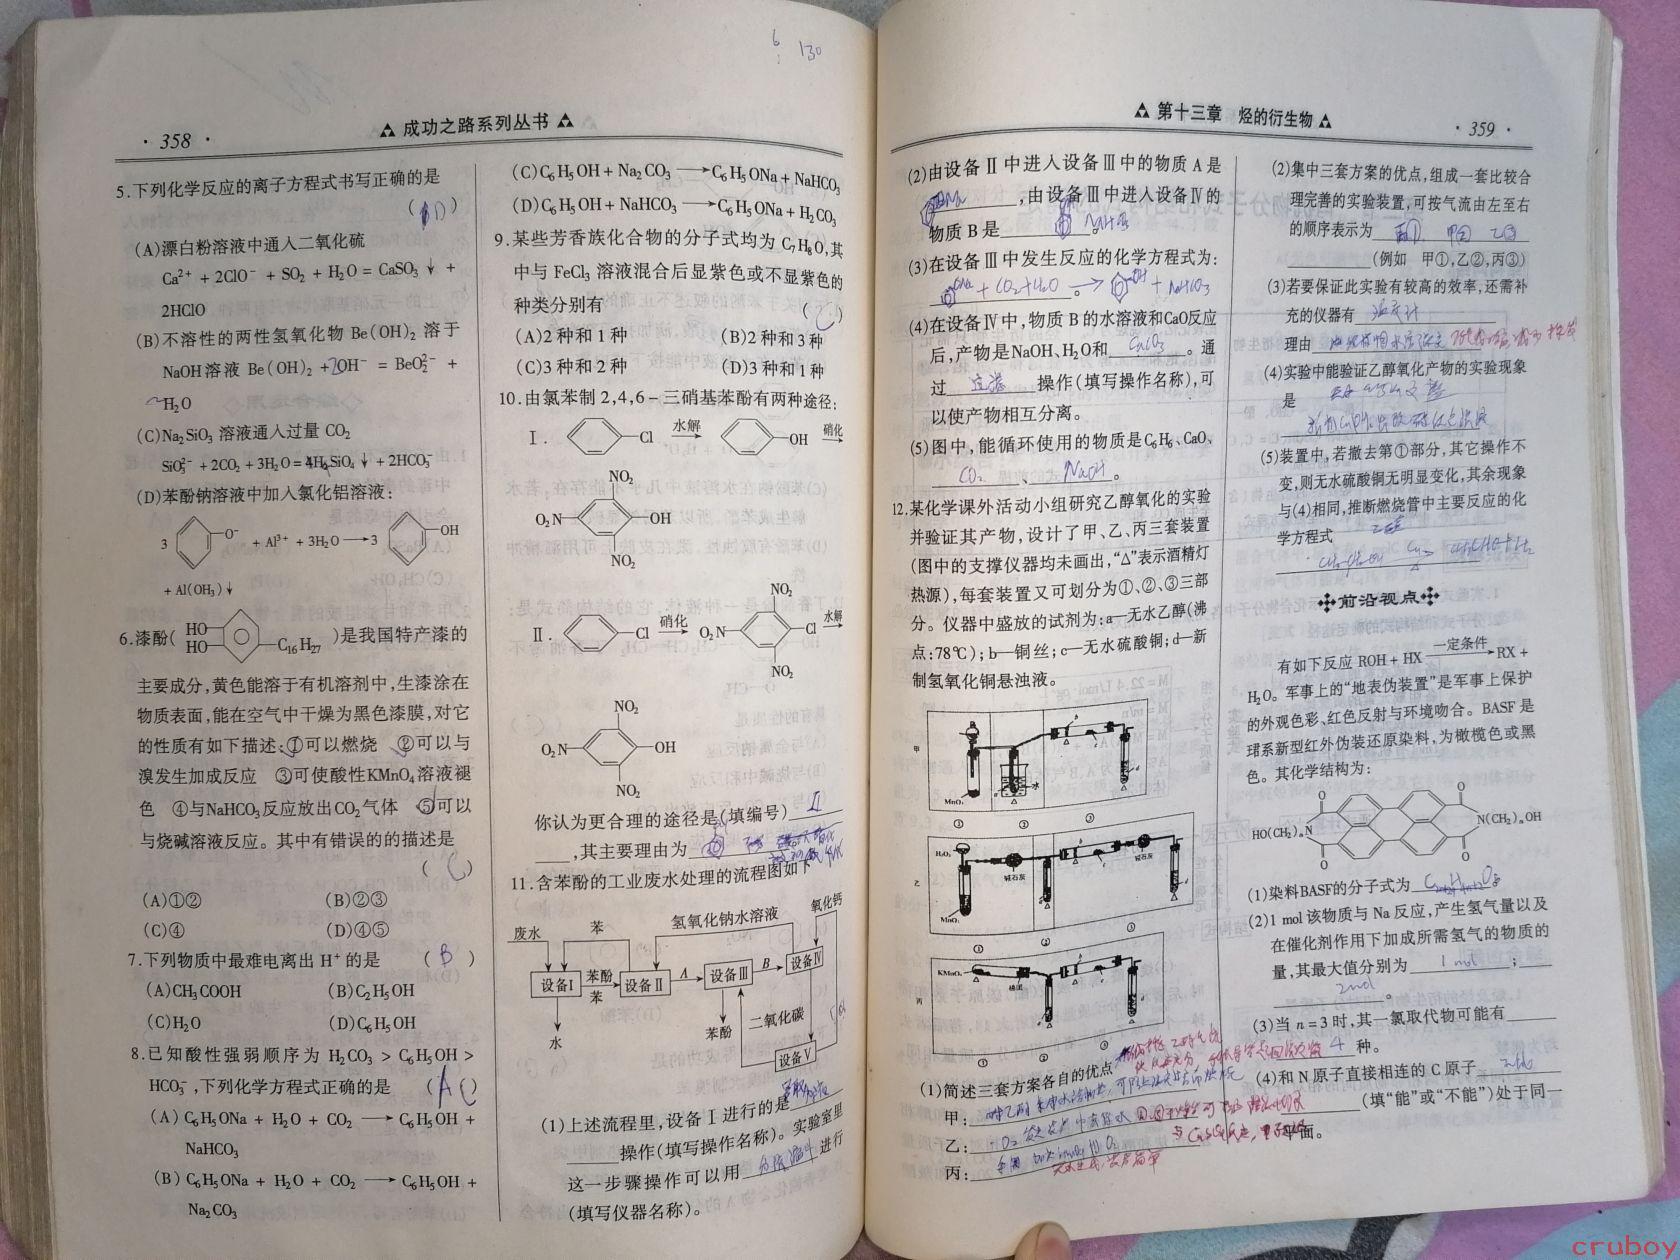 6
130
· 358 ·
成功之路系列丛书
5.下列化学反应的离子方程式书写正确的是
( D )
(A)漂白粉溶液中通入二氧化硫
Ca²⁺ + 2ClO⁻ + SO₂ + H₂O = CaSO₃ ↓ +
2HClO
(B)不溶性的两性氢氧化物 Be(OH)₂ 溶于
NaOH溶液 Be(OH)₂ + 2OH⁻ = BeO₂²⁻ +
H₂O
(C)Na₂SiO₃ 溶液通入过量 CO₂
SiO₃²⁻ + 2CO₂ + 3H₂O = 4H₄SiO₄ ↓ + 2HCO₃⁻
(D)苯酚钠溶液中加入氯化铝溶液:
3 O⁻ + Al³⁺ + 3H₂O → 3 OH
+ Al(OH)₃ ↓
6.漆酚( HO HO C₁₆H₂₇ )是我国特产漆的
主要成分,黄色能溶于有机溶剂中,生漆涂在
物质表面,能在空气中干燥为黑色漆膜,对它
的性质有如下描述:①可以燃烧 ②可以与
溴发生加成反应 ③可使酸性KMnO₄溶液褪
色 ④与NaHCO₃反应放出CO₂气体 ⑤可以
与烧碱溶液反应。其中有错误的的描述是
( C )
(A)①② (B)②③
(C)④ (D)④⑤
7.下列物质中最难电离出 H⁺ 的是 ( B )
(A)CH₃COOH (B)C₂H₅OH
(C)H₂O (D)C₆H₅OH
8.已知酸性强弱顺序为 H₂CO₃ > C₆H₅OH >
HCO₃⁻,下列化学方程式正确的是 ( AC )
(A) C₆H₅ONa + H₂O + CO₂ → C₆H₅OH +
NaHCO₃
(B) C₆H₅ONa + H₂O + CO₂ → C₆H₅OH +
Na₂CO₃
(C)C₆H₅OH + Na₂CO₃ → C₆H₅ONa + NaHCO₃
(D)C₆H₅OH + NaHCO₃ → C₆H₅ONa + H₂CO₃
9.某些芳香族化合物的分子式均为 C₇H₈O,其
中与 FeCl₃ 溶液混合后显紫色或不显紫色的
种类分别有 ( C )
(A)2种和1种 (B)2种和3种
(C)3种和2种 (D)3种和1种
10.由氯苯制2,4,6-三硝基苯酚有两种途径:
Ⅰ. Cl 水解 OH 硝化
NO₂
O₂N OH
NO₂
Ⅱ. Cl 硝化 O₂N NO₂ Cl NO₂ 水解
NO₂
O₂N OH
NO₂
你认为更合理的途径是(填编号) Ⅱ
,其主要理由为
11.含苯酚的工业废水处理的流程图如下
废水 苯 氢氧化钠水溶液 氧化钙
设备Ⅰ 苯酚 苯 设备Ⅱ A 设备Ⅲ B 设备Ⅳ
水 苯酚 二氧化碳
设备Ⅴ
(1)上述流程里,设备Ⅰ进行的是
操作(填写操作名称)。实验室里
这一步骤操作可以用 分液漏斗 进行
(填写仪器名称)。
第十三章 烃的衍生物
· 359 ·
(2)由设备Ⅱ中进入设备Ⅲ中的物质A是
,由设备Ⅲ中进入设备Ⅳ的
物质B是 NaHCO₃
(3)在设备Ⅲ中发生反应的化学方程式为:
ONa + CO₂ + H₂O → OH + NaHCO₃ 。
(4)在设备Ⅳ中,物质B的水溶液和CaO反应
后,产物是NaOH、H₂O和 CaCO₃ 。通
过 过滤 操作(填写操作名称),可
以使产物相互分离。
(5)图中,能循环使用的物质是C₆H₆、CaO、
CO₂ 、 NaOH 。
12.某化学课外活动小组研究乙醇氧化的实验
并验证其产物,设计了甲、乙、丙三套装置
(图中的支撑仪器均未画出,“△”表示酒精灯
热源),每套装置又可划分为①、②、③三部
分。仪器中盛放的试剂为:a—无水乙醇(沸
点:78℃);b—铜丝;c—无水硫酸铜;d—新
制氢氧化铜悬浊液。
甲 MnO₂ 水
① ② ③
乙 H₂O₂ MnO₂ 碱石灰 碱石灰
① ② ③
丙 KMnO₄ 棉团
① ② ③
(1)简述三套方案各自的优点
甲:
乙:
丙:
(2)集中三套方案的优点,组成一套比较合
理完善的实验装置,可按气流由左至右
的顺序表示为 丙① 甲② 乙③
(例如 甲①,乙②,丙③)
(3)若要保证此实验有较高的效率,还需补
充的仪器有 温度计
理由
(4)实验中能验证乙醇氧化产物的实验现象
是
(5)装置中,若撤去第①部分,其它操作不
变,则无水硫酸铜无明显变化,其余现象
与(4)相同,推断燃烧管中主要反应的化
学方程式 乙醛
前沿视点
有如下反应 ROH + HX 一定条件 → RX +
H₂O。军事上的“地表伪装置”是军事上保护
的外观色彩、红色反射与环境吻合。BASF是
琒系新型红外伪装还原染料,为橄榄色或黑
色。其化学结构为:
HO(CH₂)ₙN O O O O N(CH₂)ₙOH
(1)染料BASF的分子式为
(2)1 mol 该物质与Na反应,产生氢气量以及
在催化剂作用下加成所需氢气的物质的
量,其最大值分别为 1 mol ;
。
(3)当 n = 3 时,其一氯取代物可能有
4 种。
(4)和N原子直接相连的C原子
(填“能”或“不能”)处于同一
平面。
cruboy